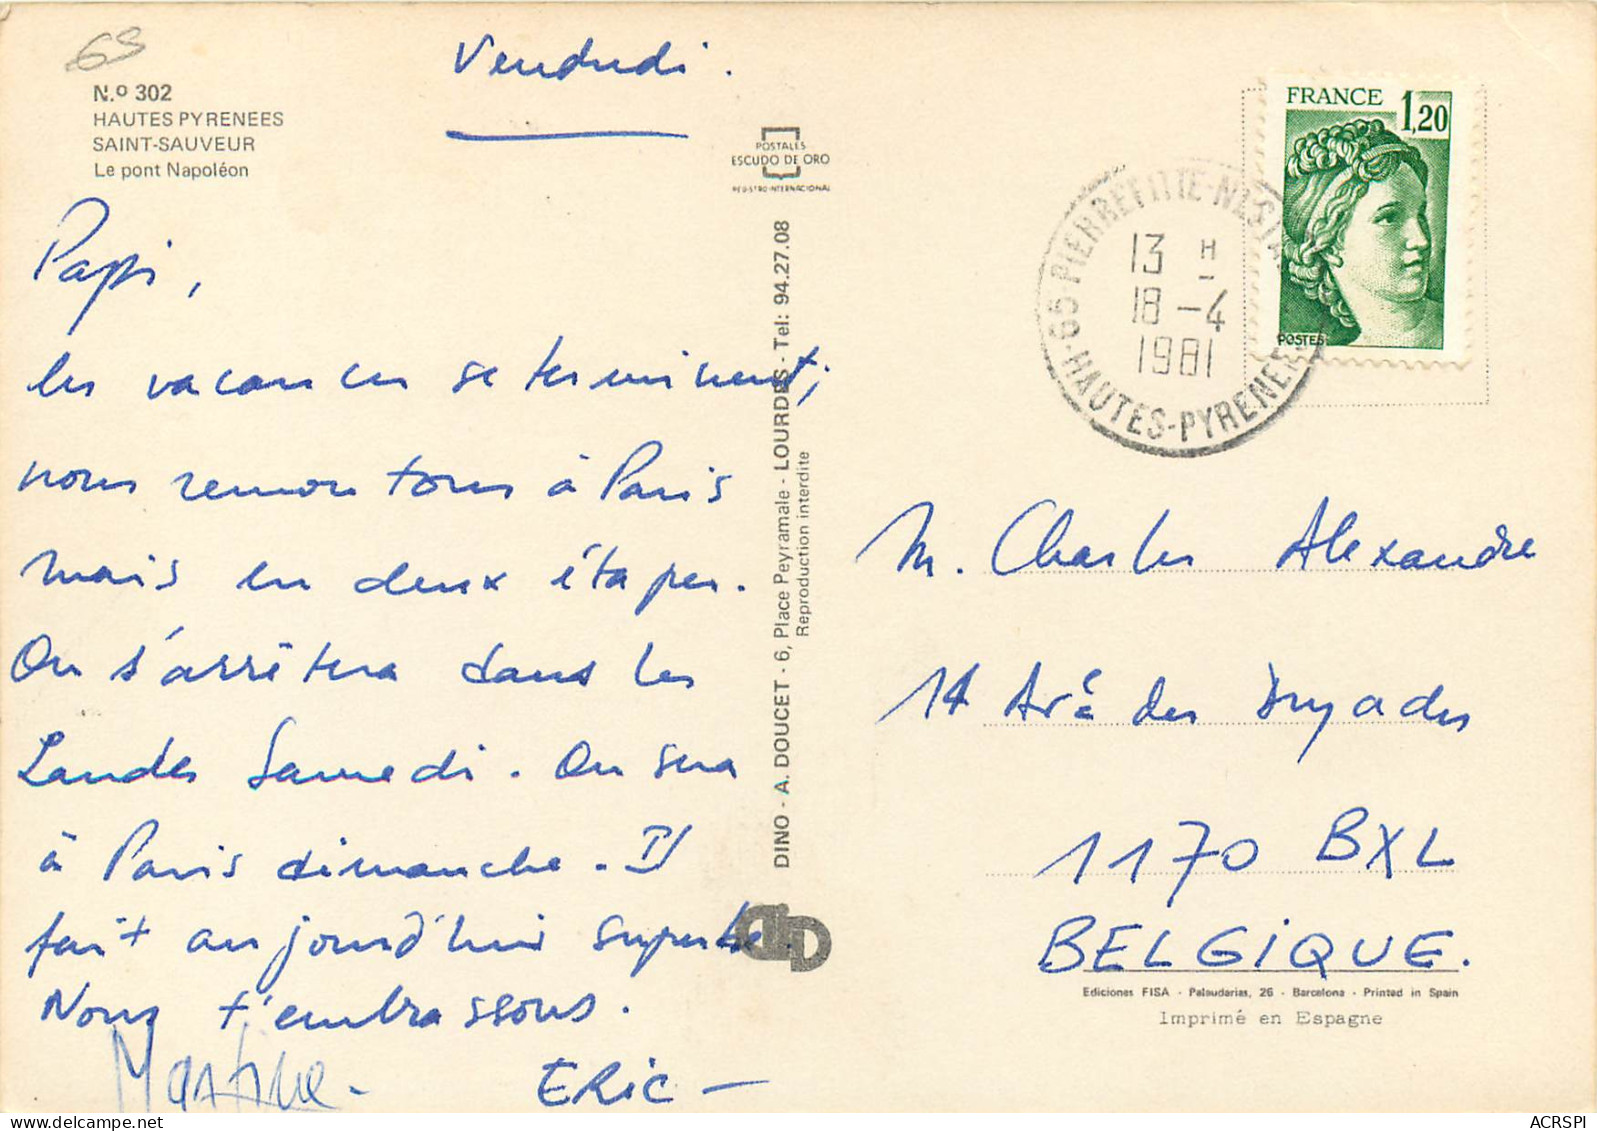 69
N.º 302
HAUTES PYRENEES
SAINT-SAUVEUR
Le pont Napoléon
Vendredi.
Papi,
les vacances se terminent;
nous remontons à Paris
mais en deux étapes.
On s'arrêtera dans les
Landes Samedi. On sera
à Paris dimanche. Il
fait aujourd'hui superbe.
Nous t'embrassons.
Martine - ERIC -
POSTALES
ESCUDO DE ORO
REGISTRO INTERNACIONAL
DINO - A. DOUCET - 6, Place Peyramale - LOURDES - Tel: 94.27.08
Reproduction interdite
FRANCE 1,20
POSTES
65 - PIERREFITTE-NESTALAS
13 H
18 - 4
1981
HAUTES-PYRENEES
M. Charles Alexandre
14 Av. des Dryades
1170 BXL
BELGIQUE.
Ediciones FISA - Palaudarias, 26 - Barcelona - Printed in Spain
Imprimé en Espagne
ACRSPI